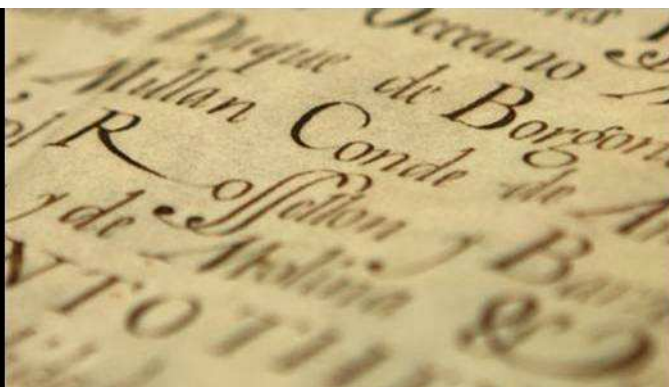 Occeano
Duque de Borgoñ
Millan Conde de
Rossellon y Bar
y de Molina &
NTO TI